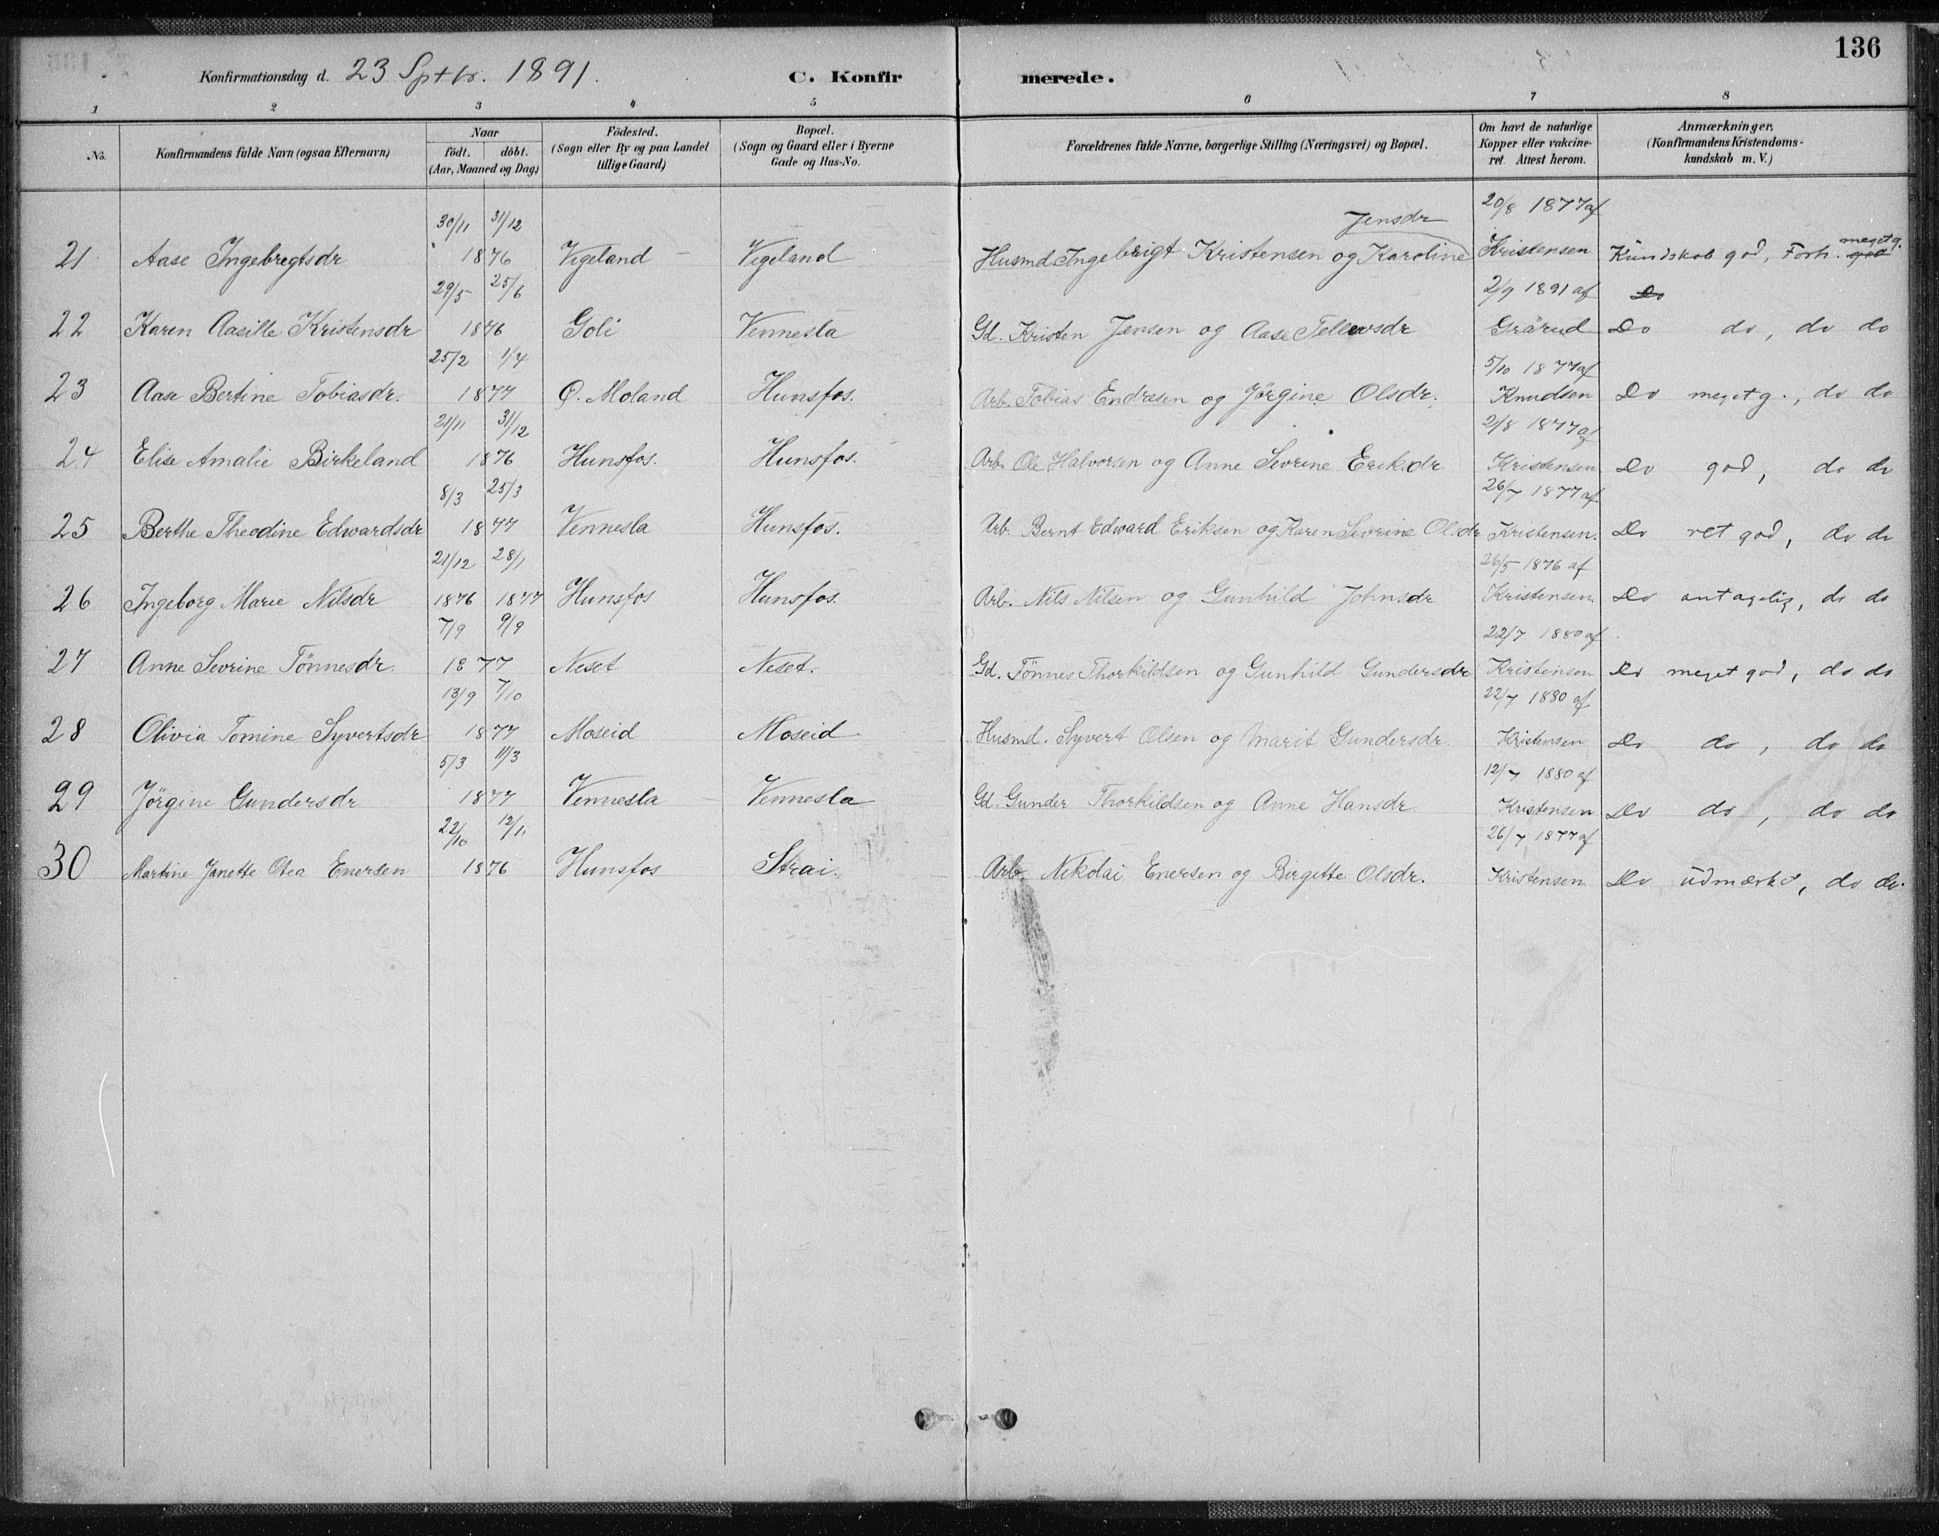 136
Konfirmationsdag d. 23 Sptbr. 1891. C. Konfir merede.
1 2 3 4 5 6 7 8
No. Konfirmandens fulde Navn (ogsaa Efternavn) Naar födt. döbt. (Aar, Maaned og Dag) Födested. (Sogn eller By og paa Landet tillige Gaard) Bopæl. (Sogn og Gaard eller i Byerne Gade og Hus-No. Forældrenes fulde Navne, borgerlige Stilling (Næringsvei) og Bopæl. Om havt de naturlige Kopper eller vakcineret. Attest herom. Anmærkninger. (Konfirmandens Kristendomskundskab m. V.)
30/11 31/12 Jensdr 20/8 1877 af
21 Aase Ingebregtsdr 1876 Vigeland Vigeland Husmd. Ingebrigt Kristensen og Karoline Kristensen Kundskab god, Forh. god meget g.
29/5 25/6 2/9 1891 af Do
22 Karen Aasille Kristensdr 1876 Goli Vennesla Gd. Kristen Jensen og Aase Tellevsdr Grärud Do do, do do
25/2 1/4 5/10 1877 af
23 Aase Bertine Tobiasdr. 1877 Ø. Moland Hunsfos. Arb. Tobias Endresen og Jörgine Olsdr. Knudsen Do meget g., do do
21/11 31/12 2/8 1877 af
24 Elise Amalie Birkeland 1876 Hunsfos. Hunsfos. Arb. Ole Halvorsen og Anne Sevrine Erik.dr Kristensen Do god, do do
8/3 25/3 26/7 1877 af
25 Berthe Theodine Edwardsdr 1877 Vennesla Hunsfos. Arb. Bernt Edward Eriksen og Karen Sevrine Ol.dr Kristensen. Do ret god, do do
21/12 28/1 26/5 1876 af
26 Ingeborg Marie Nilsdr 1876 1877 Hunsfos Hunsfos. Arb. Nils Nilsen og Gunhild Johnsdr Kristensen. Do antagelig, do do
7/9 9/9 22/7 1880 af
27 Anne Sevrine Tönnesdr. 1877 Neset Neset. Gd. Tönnes Thorkildsen og Gunhild Gundersdr Kristensen Do meget god, do do
13/9 7/10 22/7 1880 af
28 Olivia Tomine Syvertsdr 1877 Moseid Moseid Husmd. Syvert Olsen og Marit Gundersdr. Kristensen Do do, do do
5/3 11/3 12/7 1880 af
29 Jörgine Gundersdr 1877 Vennesla Vennesla Gd. Gunder Thorkildsen og Anne Hansdr Kristensen Do do, do do
22/10 12/11 26/7 1877 af
30 Martine Janette Otea Enersen 1876 Hunsfos Strai. Arb. Nikolai Enersen og Birgette Olsdr. Kristensen Do udmærket, do do.